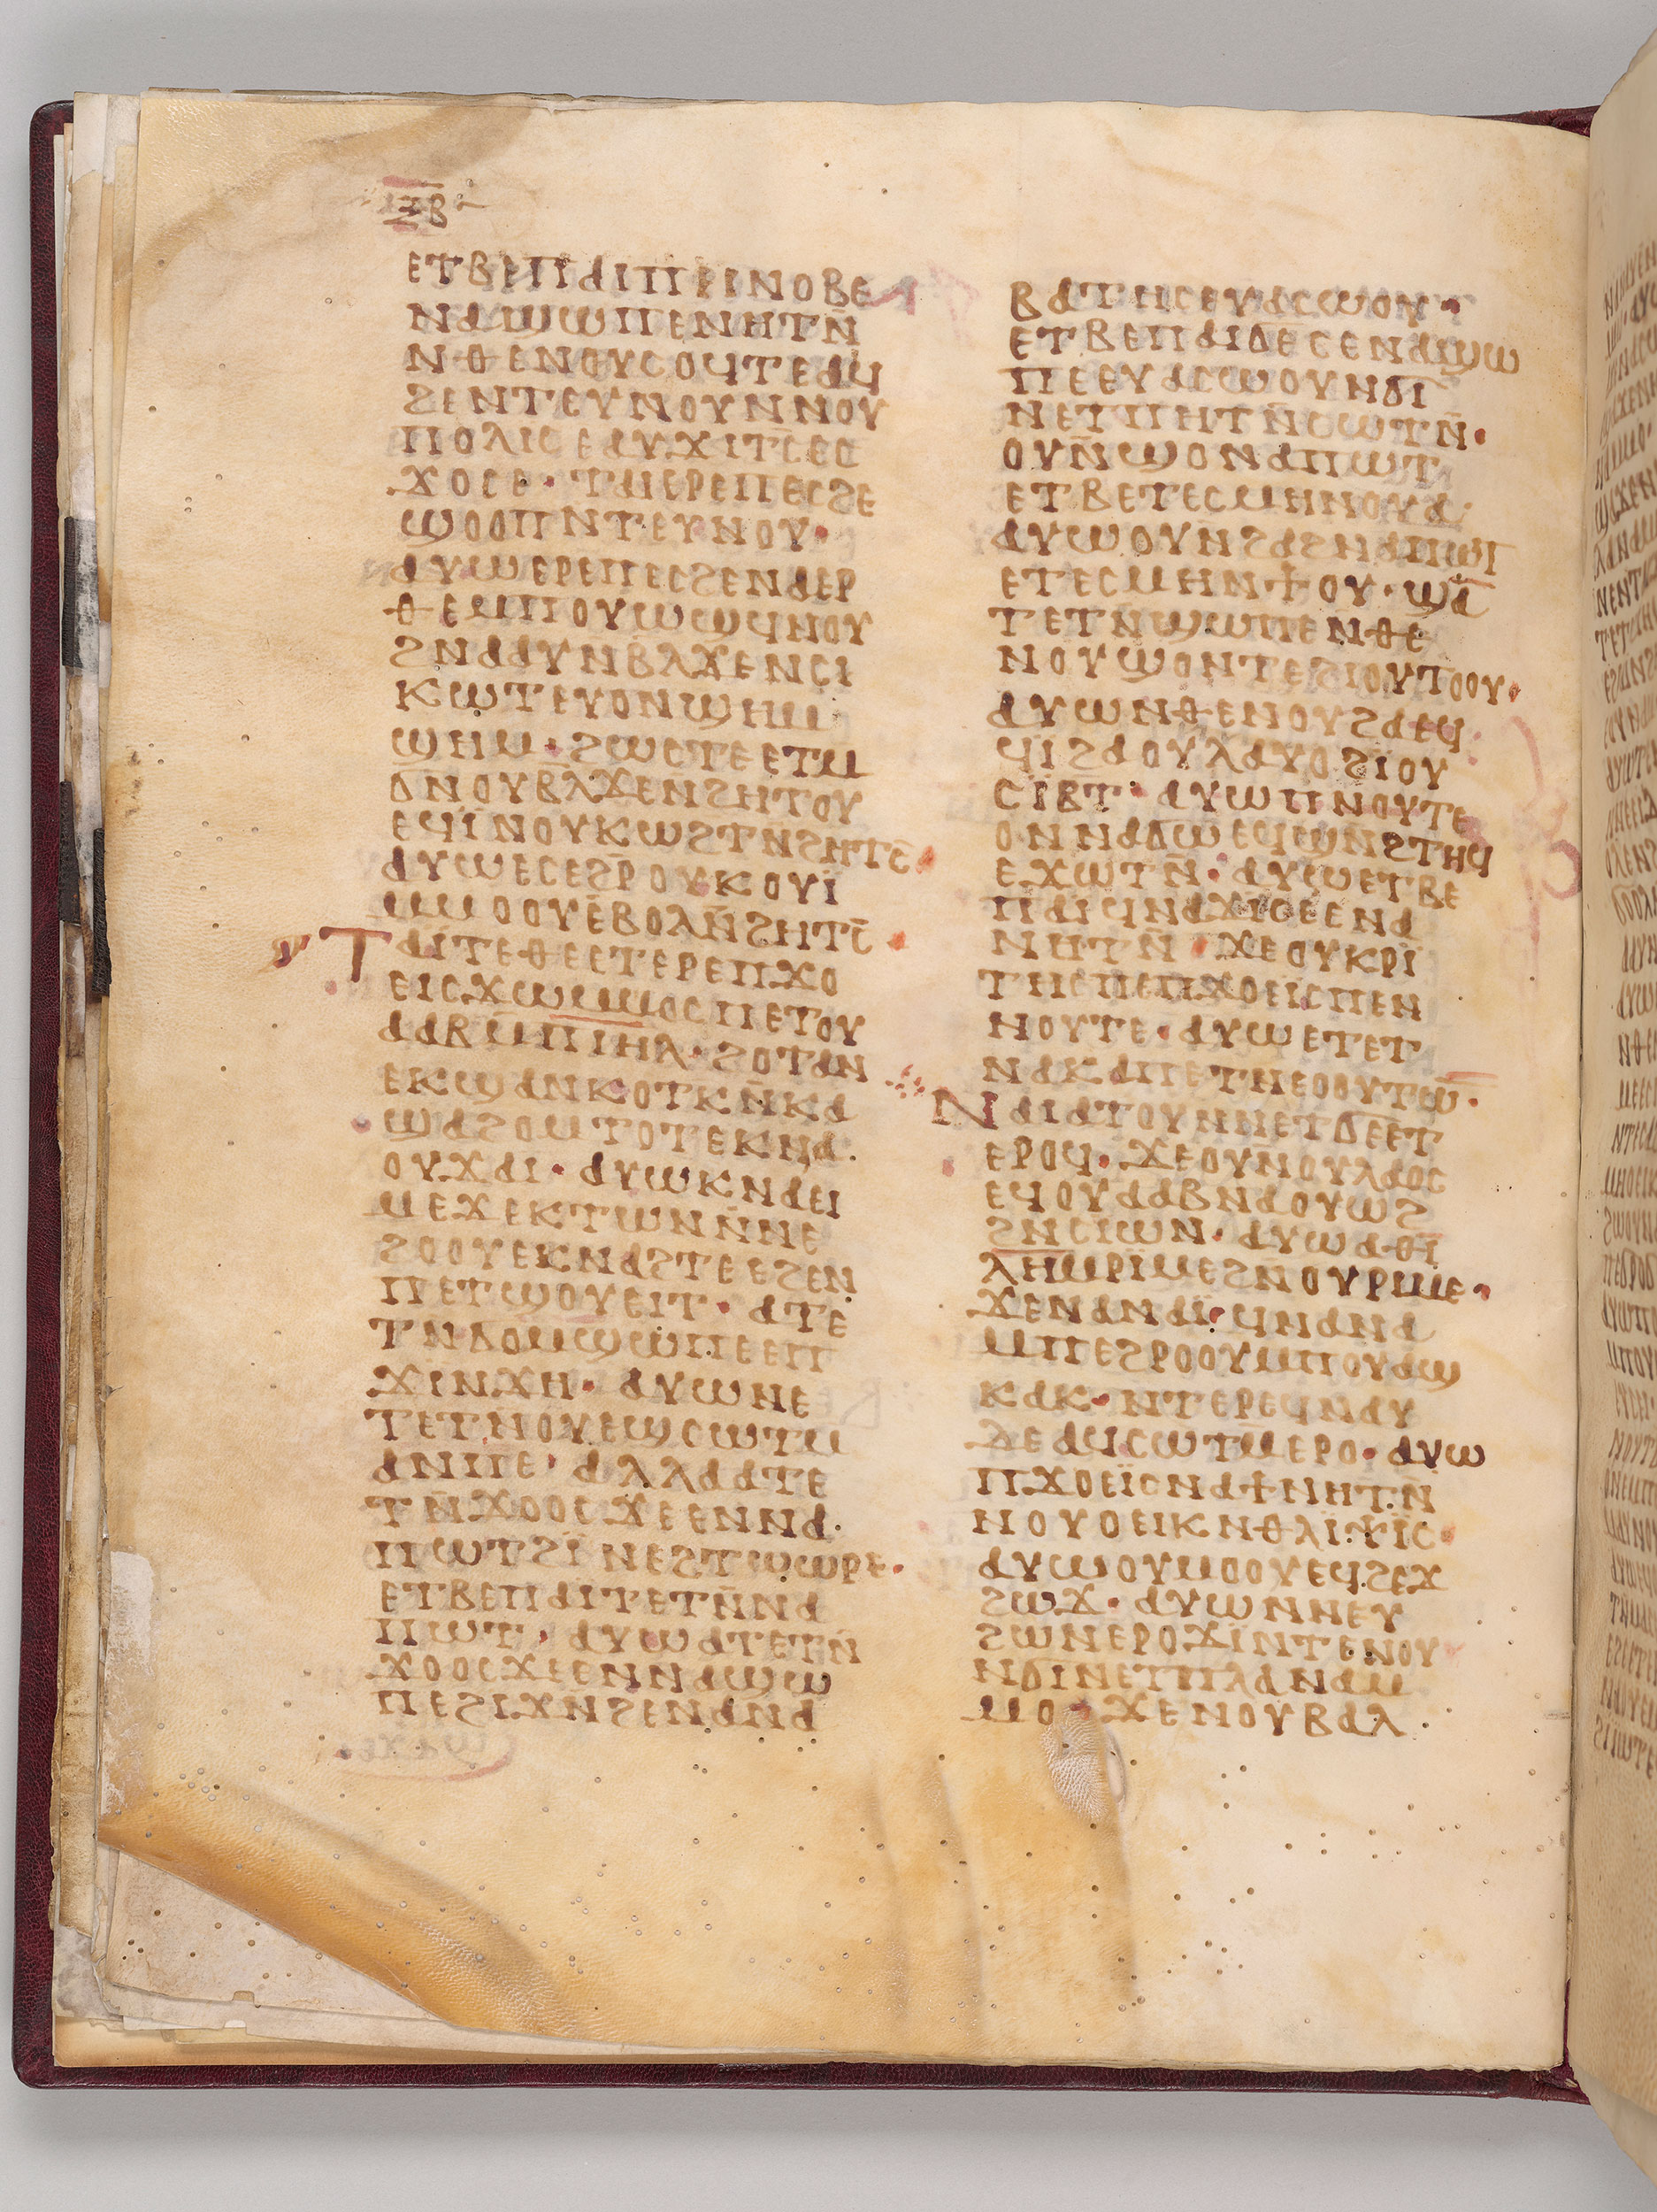 ⲝⲃ
ⲉⲧⲃⲉⲡⲁⲓⲡⲉⲓⲛⲟⲃⲉ
ⲛⲁϣⲱⲡⲉⲛⲏⲧⲛ̄
ⲛⲑⲉⲛⲟⲩⲥⲟϥⲧⲉⲁϥ
ϩⲉⲛⲧⲉⲩⲛⲟⲩⲛⲛⲟⲩ
ⲡⲟⲗⲓⲥⲉⲁⲩϫⲓⲧⲥ̄ⲉⲥ
ϫⲟⲥⲉ· ⲧⲁⲓⲉⲣⲉⲡⲉⲥϩⲉ
ϣⲟⲟⲡⲛⲧⲉⲩⲛⲟⲩ·
ⲁⲩⲱⲉⲣⲉⲡⲉⲥϩⲉⲛⲁⲉⲣ
ⲑⲉⲙⲡⲟⲩⲱϣϥⲛⲟⲩ
ϩⲛⲁⲁⲩⲛⲃⲗϫⲉⲛⲥⲓ
ⲕⲱⲧⲉⲩⲟⲛϣⲏⲙ
ϣⲏⲙ· ϩⲱⲥⲧⲉⲉⲧⲙ
ϭⲛⲟⲩⲃⲗ̄ϫⲉⲛϩⲏⲧⲟⲩ
ⲉϥⲓ̈ⲛⲟⲩⲕⲱϩⲧⲛϩⲏⲧⲥ̄·
ⲁⲩⲱⲉⲥⲉϩⲣⲟⲩⲕⲟⲩⲓ̈
ⲙⲙⲟⲟⲩⲉ̄ⲃⲟⲗⲛ̄ϩⲏⲧⲥ̄·
ⲧⲁⲓ̈ⲧⲉⲑⲉⲉⲧⲉⲣⲉⲡϫⲟ
ⲉⲓⲥϫⲱⲙⲙⲟⲥⲡⲉⲧⲟⲩ
ⲁⲁⲃⲙ̄ⲡⲓⲏⲗ· ϩⲟⲧⲁⲛ
ⲉⲕϣⲁⲛⲕⲟⲧⲕⲛ̄ⲕⲁ
ϣⲁϩⲟⲙⲧⲟⲧⲉⲕⲛⲁ·
ⲟⲩϫⲁⲓ· ⲁⲩⲱⲕⲛⲁⲉⲓ
ⲙⲉϫⲉⲕⲧⲱⲛⲛ̄ⲛⲉ
ϩⲟⲟⲩⲉⲕⲛⲁϩⲧⲉⲉϩⲉⲛ
ⲡⲉⲧϣⲟⲩⲉⲓⲧ· ⲁⲧⲉ
ⲧⲛϭⲟⲙϣⲱⲡⲉⲉⲡ
ϫⲓⲛϫⲏ· ⲁⲩⲱⲛⲉ
ⲧⲉⲧⲛⲟⲩⲉϣⲥⲱⲧⲙ
ⲁⲛⲡⲉ· ⲁⲗⲗⲁⲁⲧⲉ
ⲧⲛ̄ϫⲟⲟⲥϫⲉⲉⲛⲛⲁ·
ⲡⲱⲧϩⲓ̈ⲛⲉϩⲧⲱⲱⲣⲉ·
ⲉⲧⲃⲉⲡⲁⲓⲧⲉⲧⲛ̄ⲛⲁ
ⲡⲱⲧ· ⲁⲩⲱⲁⲧⲉⲧⲛ̄
ϫⲟⲟⲥϫⲉⲉⲛⲛⲁϣⲱ
ⲡⲉϩⲓϫⲛϩⲉⲛⲁⲛⲁ
ⲃⲁⲧⲏⲥⲉⲩⲁⲥⲱⲟⲩ·
ⲉⲧⲃⲉⲡⲁⲓⲇⲉⲥⲉⲛⲁϣⲱ
ⲡⲉⲉⲩⲁⲥⲱⲟⲩⲛϭⲓ
ⲛⲉⲧⲡⲏⲧⲛ̄ⲥⲱⲧⲛ̄·
ⲟⲩⲛ̄ϣⲟⲛⲁⲡⲱⲧ
ⲉⲧⲃⲉⲧⲉⲥⲙⲏⲛⲟⲩⲁ
ⲁⲩⲱⲟⲩⲛϩⲁϩⲛⲁⲡⲱⲧ
ⲉⲧⲉⲥⲙⲏⲛϯⲟⲩ· ϣⲁ
ⲧⲉⲧⲛϣⲱⲡⲉⲛⲑⲉ
ⲛⲟⲩϣⲟⲛⲧⲉϩⲓⲟⲩⲧⲟⲟⲩ·
ⲁⲩⲱⲛⲑⲉⲛⲟⲩϩⲁⲉϥ
ϥⲓϩⲁⲟⲩⲗⲁⲩⲟϩⲓ̈ⲟⲩ
ⲥⲓⲃⲧ· ⲁⲩⲱⲡⲛⲟⲩⲧⲉ
ⲟⲛⲛⲁϭⲱⲉϥϣⲛϩⲧⲏϥ
ⲉϫⲱⲧⲛ̄· ⲁⲩⲱⲉⲧⲃⲉ
ⲡⲁⲓϥⲛⲁϫⲓⲥⲉⲉⲛⲁ
ⲛⲏⲧⲛ̄· ϫⲉⲟⲩⲕⲣⲓ̈
ⲧⲏⲥⲡⲉⲡϫⲟⲉⲓⲥⲡⲉⲛ
ⲛⲟⲩⲧⲉ· ⲁⲩⲱⲉⲧⲉⲧ
ⲛⲁⲕⲁⲡⲉⲧⲛⲉⲟⲟⲩⲧⲱ̄·
ⲛⲁⲓⲁⲧⲟⲩⲛⲛⲉⲧϭⲉⲉⲧ
ⲉⲣⲟϥ· ϫⲉⲟⲩⲛⲟⲩⲗⲁⲟⲥ
ⲉϥⲟⲩⲁⲁⲃⲛⲁⲟⲩⲱϩ
ϩⲛⲥⲓⲱⲛ· ⲁⲩⲱⲁⲑⲓ̄
ⲗⲏⲙⲣⲓ̈ⲙⲉϩⲛⲟⲩⲣⲙⲉ·
ϫⲉⲛⲁⲛⲁⲓ̈· ϥⲛⲁⲛⲁ
ⲙⲡⲉϩⲣⲟⲟⲩⲙⲡⲟⲩⲁϣ
ⲕⲁⲕ· ⲛⲧⲉⲣⲉϥⲛⲁⲩ
ⲇⲉⲁϥⲥⲱⲧⲙⲉⲣⲟ· ⲁⲩⲱ
ⲡϫⲟⲉⲓ̈ⲥⲛⲁϯⲛⲏⲧⲛ̄
ⲛⲟⲩⲟⲉⲓⲕⲛⲑⲗⲓ̈ⲯⲓ̈ⲥ·
ⲁⲩⲱⲟⲩⲙⲟⲟⲩⲉϥϩⲉϫ
ϩⲱϫ· ⲁⲩⲱⲛⲛⲉⲩ
ϩⲱⲛⲉⲣⲟϫⲓⲛⲧⲉⲛⲟⲩ
ⲛϭⲓⲛⲉⲧⲡⲗⲁⲛⲁⲙ
ⲙⲟ· ϫⲉⲛⲟⲩⲃⲁⲗ·